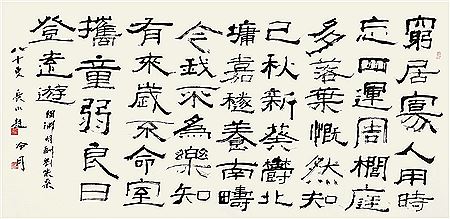 窮居寡人用時
忘四運周櫚庭
多落葉慨然知
已秋新葵鬱北
墉嘉穟養南疇
今我不為樂知
有來歲不命室
攜童弱良日
登遠遊
陶淵明酬劉柴桑
八十叟